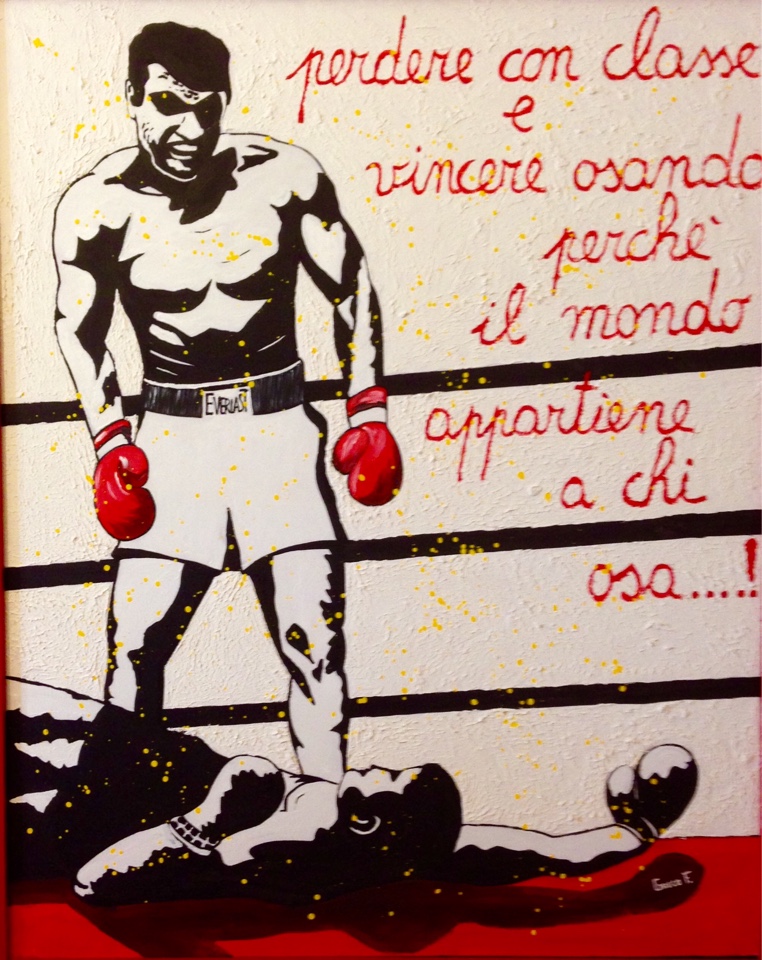 perdere con classe
e
vincere osando
perchè
il mondo
appartiene
a chi
osa.....!
EVERLAST